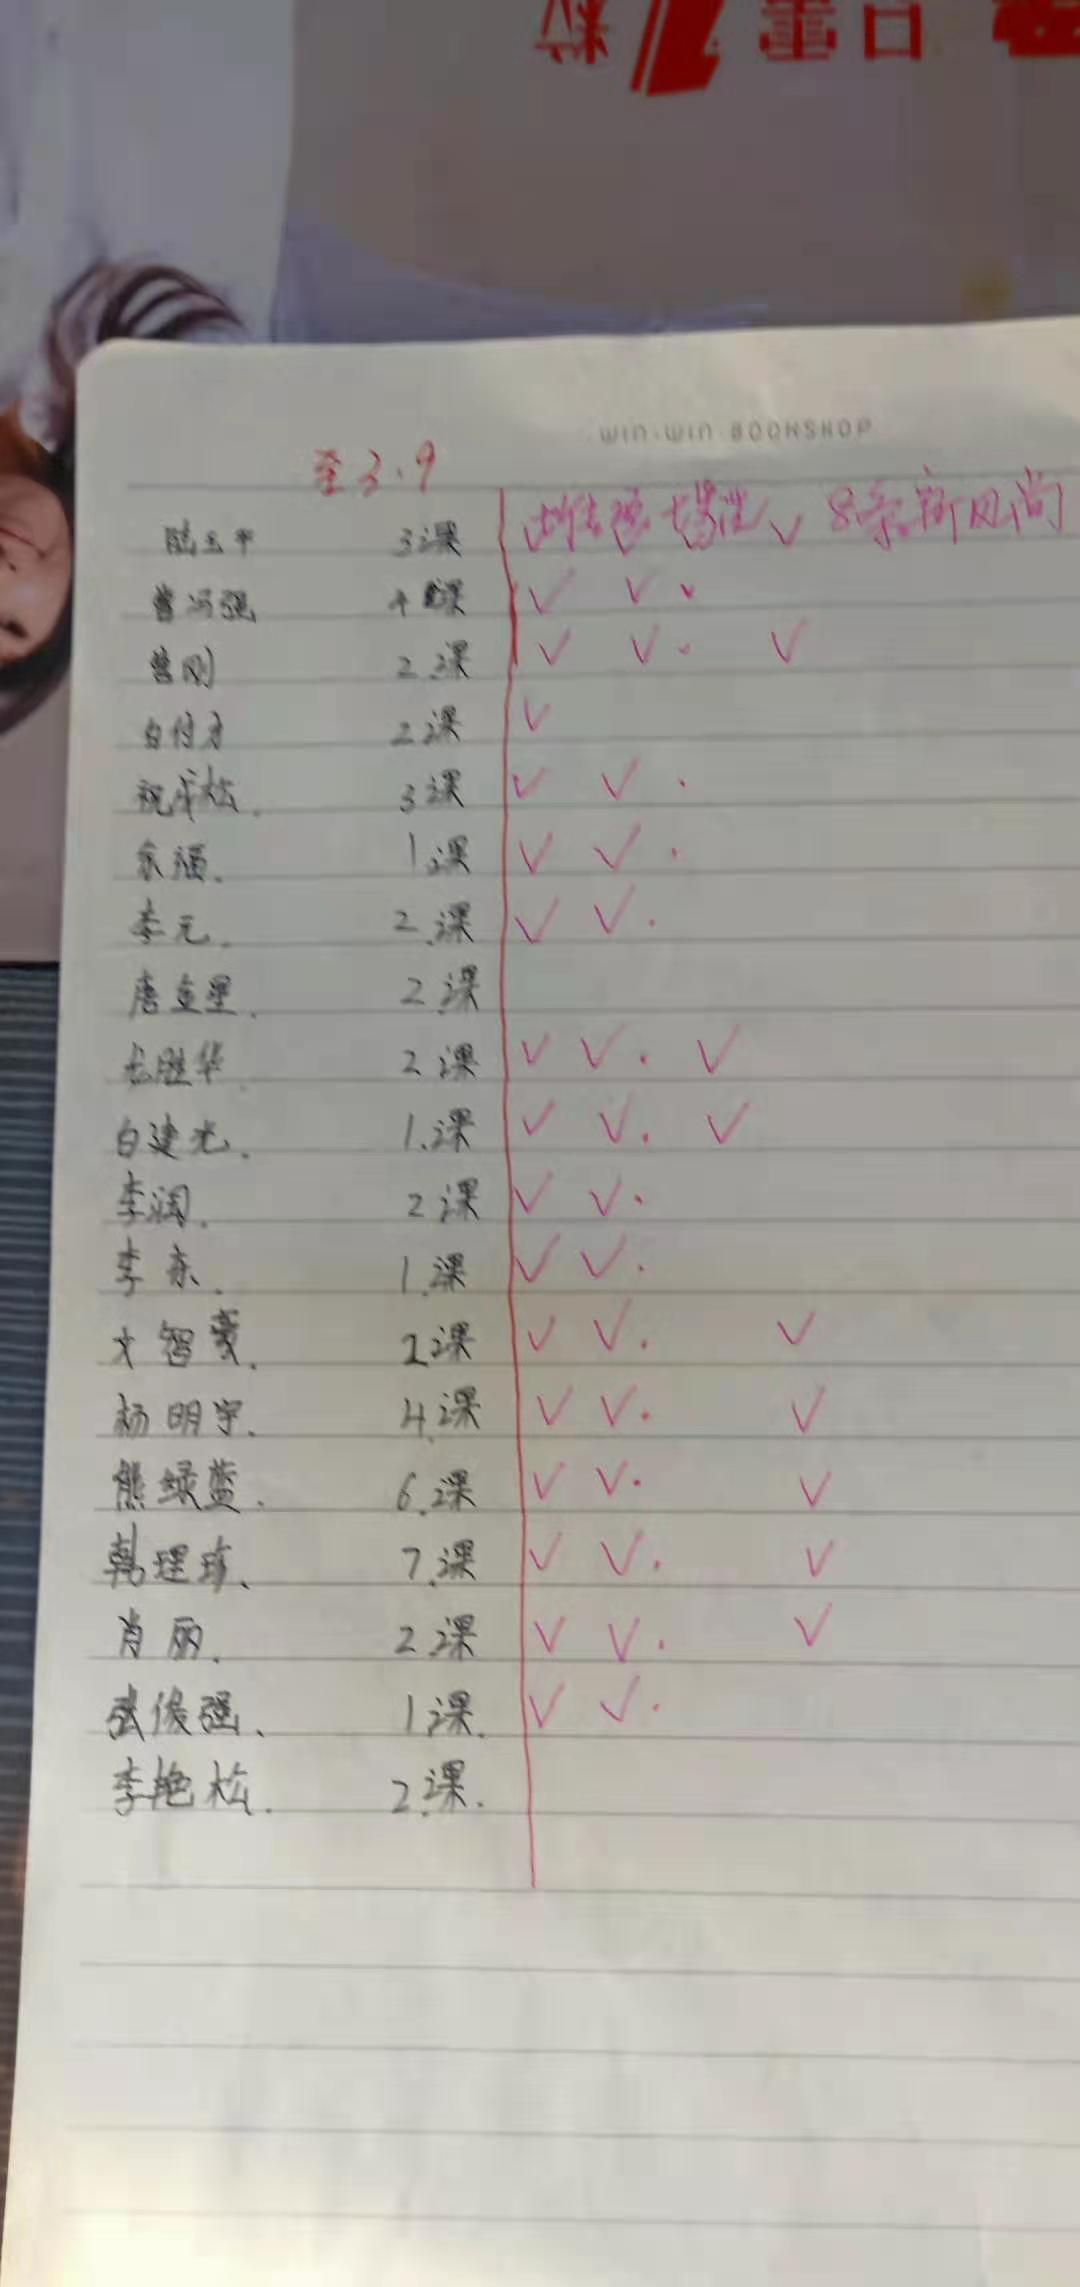 WIN·WIN BOOKSHOP
至3.9
陆玉平 3课 8条新风尚
曾冯强 4课 ✓ ✓ ✓
曾刚 2课 ✓ ✓ ✓
白付才 2课 ✓
祝成松. 3课 ✓ ✓ .
余福. 1课 ✓ ✓ .
李元. 2.课 ✓ ✓ .
唐金星. 2课
龙胜华 2课 ✓ ✓ . ✓
白建光. 1.课 ✓ ✓ . ✓
李润. 2课 ✓ ✓ .
李东. 1.课 ✓ ✓ .
文智豪. 2课 ✓ ✓ . ✓
杨明宇. 4.课 ✓ ✓ . ✓
熊绿蓝. 6.课 ✓ ✓ . ✓
韩理珍、 7.课 ✓ ✓ . ✓
肖丽. 2课 ✓ ✓ . ✓
张俊强、 1课. ✓ ✓ .
李艳松. 2.课.